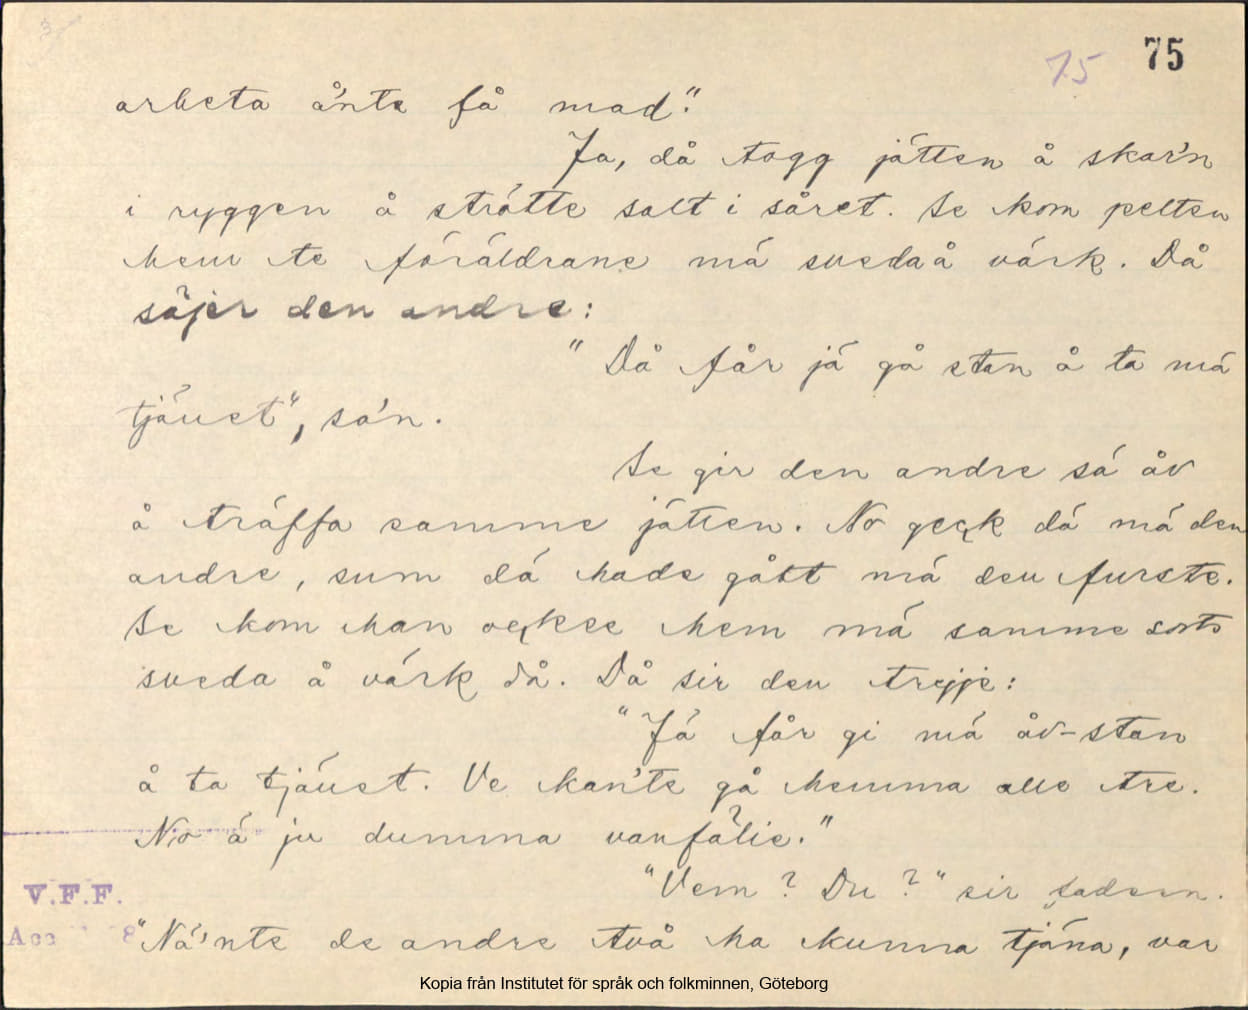 75
75
arbeta å'nte få mad."
Ja, då togg jätten å skar'n
i ryggen å strätte salt i såret. Se kom pelten
hem te föräldrane mä sveda å värk. Då
säjer den andre:
"Då får jä gå stan å ta mä
tjänst", sa'n.
Se gir den andre sä åv
å träffa samme jätten. No geck dä mä den
andre, sum dä hade gått mä den furste.
Se kom han ockse hem mä samme sorts
sveda å värk då. Då sir den trejje:
"Jä får gi mä åv-stan
å ta tjänst. Ve kan'te gå hemma alle tre.
No ä ju dumma vanfälie."
"Vem? Du?" sir fadern.
"Nä'nte de andre två ha kunna tjäna, var
V.F.F.
Acc
Kopia från Institutet för språk och folkminnen, Göteborg